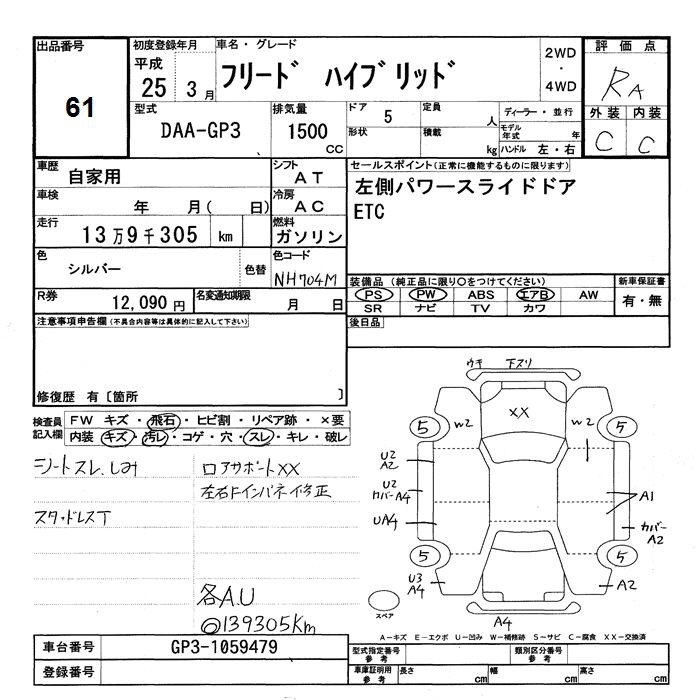 出品番号
61
初度登録年月
平成
25 3月
車名・グレード
フリード ハイブリッド
2WD
・
4WD
評価点
RA
外装 内装
C C
型式
DAA-GP3
排気量
1500
CC
ドア 5
形状
定員 人
積載 kg
ディーラー・並行
モデル年式 年
ハンドル 左・右
車歴
自家用
シフト
AT
車検
年 月( 日)
冷房
AC
走行
13万9千305 km
燃料
ガソリン
色
シルバー
色替
色コード
NH704M
R券
12,090円
名変通知期限
月 日
セールスポイント(正常に機能するものに限ります)
左側パワースライドドア
ETC
装備品(純正品に限り○をつけてください)
PS PW ABS エアB AW
SR ナビ TV カワ
新車保証書
有・無
後日品
注意事項申告欄(不具合内容等は具体的に記入して下さい)
修復歴 有〔箇所 〕
検査員
記入欄
FW キズ・飛石・ヒビ割・リペア跡・×要
内装 キズ・汚レ・コゲ・穴・スレ・キレ・破レ
シートスレ.しみ
スタッドレスT
ロアサポートXX
左右Fインパネ修正
各A.U
◎139305Km
ウキ 下スリ
XX
5 W2 W2 5
U2
A2
U2
カバーA4
UA4
A1
カバー
A2
5 5
U3
A4
A2
A4
スペア
A-キズ E-エクボ U-凹み W-補修跡 S-サビ C-腐食 XX-交換済
車台番号
GP3-1059479
登録番号
型式指定番号
参考
類別区分番号
参考
車庫証明用
参考
長さ cm
幅 cm
高さ cm